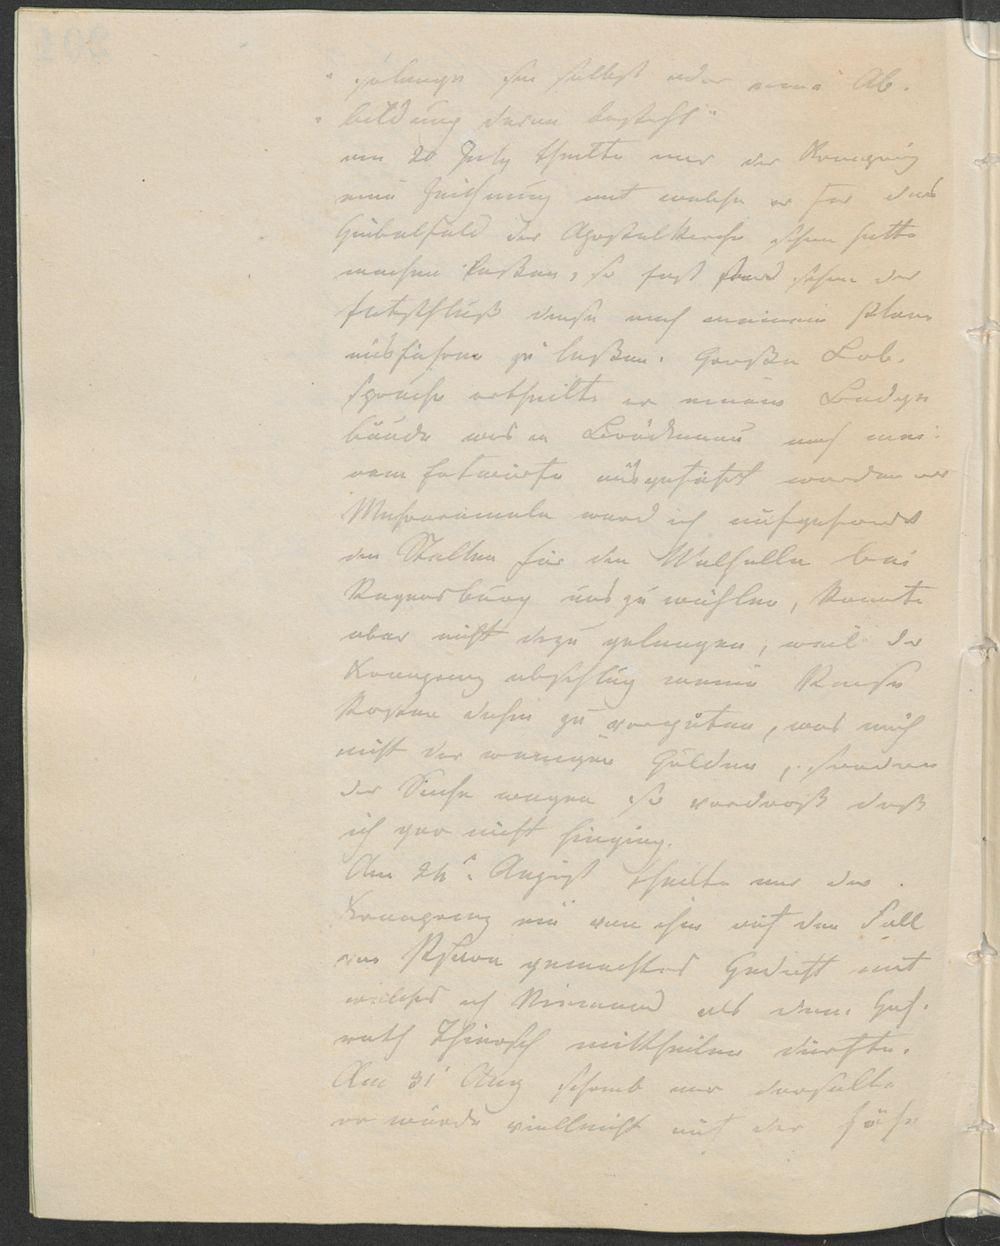 " solange sie selbst oder eine Ab-
" bildung deren besteht"
am 20 July theilte mir der Kronprinz
eine Zeichnung mit welche er für das
Giebelfeld der Apostelkirche schon hatte
machen laßen, so fest stand schon der
Entschluß diese nach meinem Plane
ausführen zu laßen. Große Lob-
sprüche ertheilte er meinem Badge-
bäude was in Brückenau nach mei-
nem Entwurfe ausgeführt worden war
Mehreremale ward ich aufgefordert
die Stelle für die Walhalla bei
Regensburg auszuwählen, konnte
aber nicht dazu gelangen, weil der
Kronprinz abschlug meine Reise
Kosten dahin zu vergüten, was mich
nicht der wenigen Gulden, sondern
der Sache wegen so verdroß daß
ich gar nicht hinging.
Am 24 August theilte mir der
Kronprinz ein von ihm auf den Fall
von gemachtes Gedicht mit
welches ich Niemand als dem Hof-
rath Thiersch mittheilen durfte.
Am 31 Aug schrieb mir derselbe
er würde vielleicht auf der Höhe